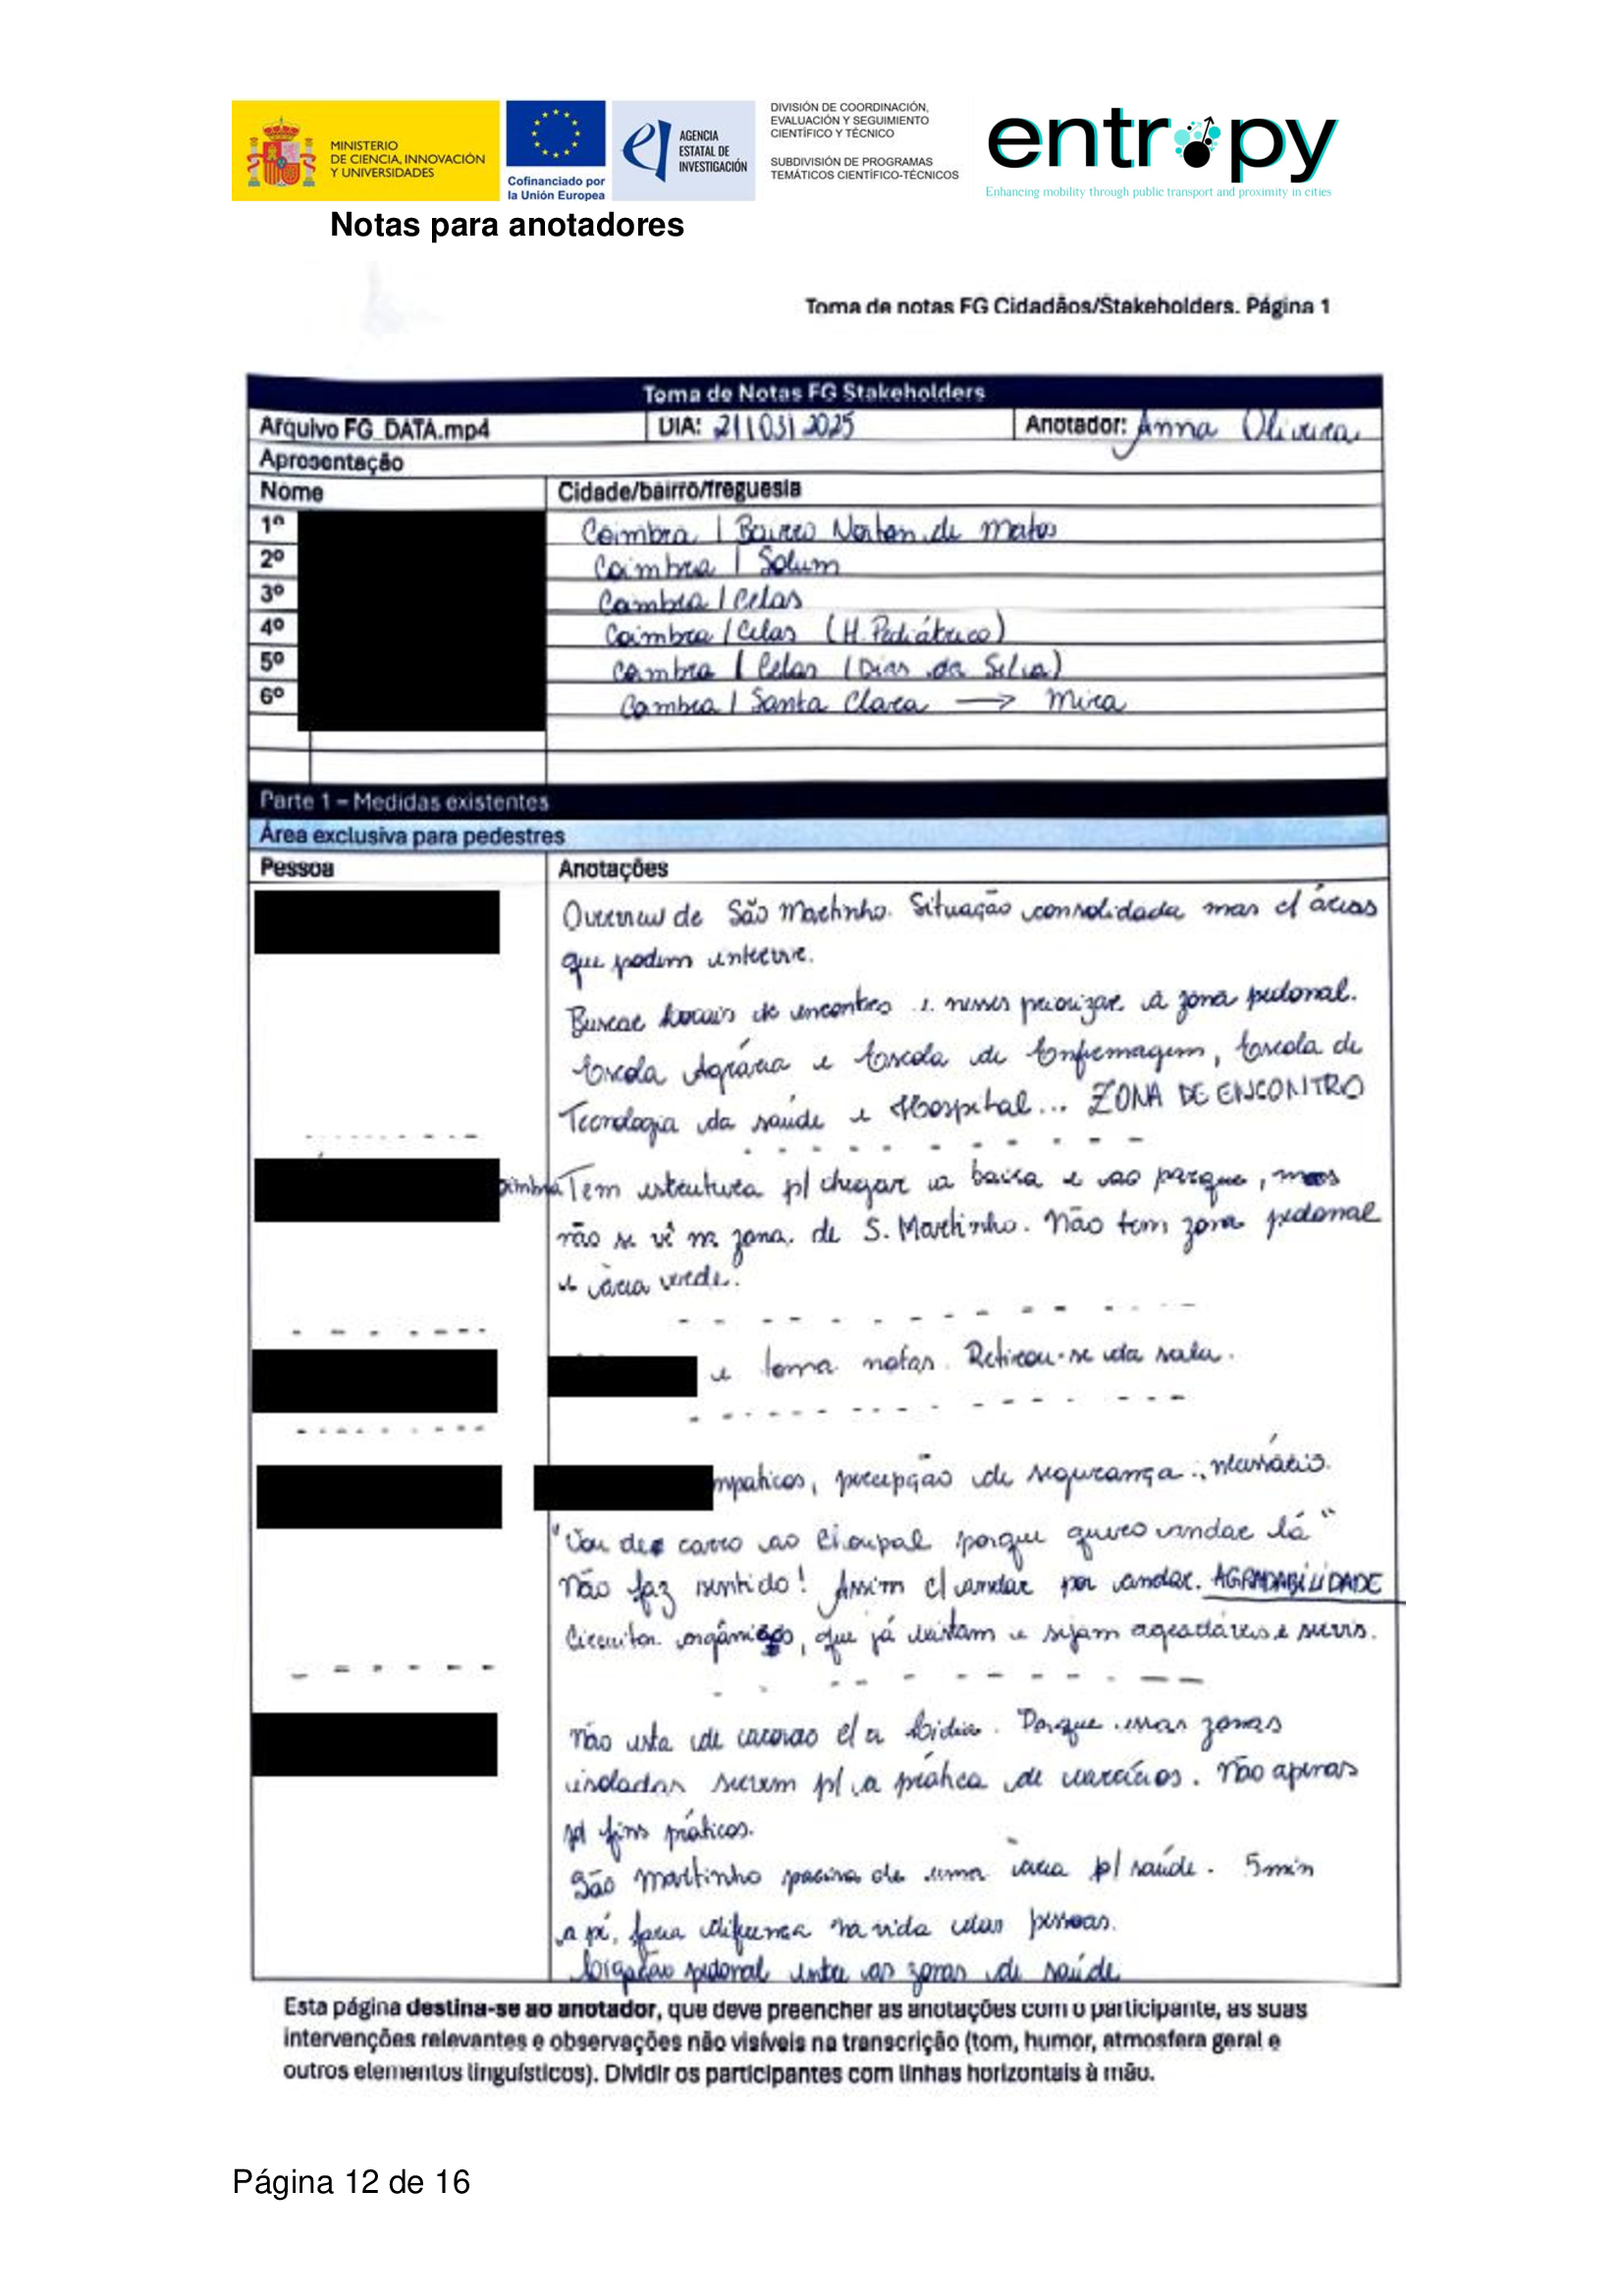 MINISTERIO
DE CIENCIA, INNOVACIÓN
Y UNIVERSIDADES
Cofinanciado por
la Unión Europea
AGENCIA
ESTATAL DE
INVESTIGACIÓN
DIVISIÓN DE COORDINACIÓN,
EVALUACIÓN Y SEGUIMIENTO
CIENTÍFICO Y TÉCNICO
SUBDIVISIÓN DE PROGRAMAS
TEMÁTICOS CIENTÍFICO-TÉCNICOS
entropy
Enhancing mobility through public transport and proximity in cities
Notas para anotadores
Toma de notas FG Cidadãos/Stakeholders. Página 1
Toma de Notas FG Stakeholders
Arquivo FG_DATA.mp4 DIA: 21|03|2025 Anotador: Anna Oliveira
Apresentação
Nome Cidade/bairro/freguesia
1º Coimbra | Bairro Norton de Matos
2º Coimbra | Solum
3º Coimbra | Celas
4º Coimbra / Celas (H. Pediátrico)
5º Coimbra | Celas (Dias da Silva)
6º Coimbra | Santa Clara → Mira
Parte 1 – Medidas existentes
Área exclusiva para pedestres
Pessoa Anotações
de São Martinho. Situação consolidada mas c/ áreas
que podem intervir.
Buscar locais de encontro e nesses priorizar a zona pedonal.
Escola Agrária e Escola de Enfermagem, Escola de
Tecnologia da saúde e Hospital... ZONA DE ENCONTRO
oimbra Tem estrutura p/ chegar a baixa e ao parque, mas
não se vê na zona de S. Martinho. Não tem zona pedonal
e área verde.
e toma notas. Retirou-se da sala.
mpaticos, percepção de segurança necessário.
"Vou de carro ao Choupal porque quero andar lá"
Não faz sentido! Assim c/ andar por andar. AGRADABILIDADE
Circuitos orgânicos, que já existam e sejam agradáveis e
Não esta de acordo c/ a Lidia. Porque essas zonas
isoladas servem p/ a prática de exercícios. Não apenas
p/ fins práticos.
São Martinho precisa de uma área p/ saúde. 5min
a pé, faria diferença na vida das pessoas.
Ligação pedonal entre as zonas de saúde
Esta página destina-se ao anotador, que deve preencher as anotações com o participante, as suas
intervenções relevantes e observações não visíveis na transcrição (tom, humor, atmosfera geral e
outros elementos linguísticos). Dividir os participantes com linhas horizontais à mão.
Página 12 de 16